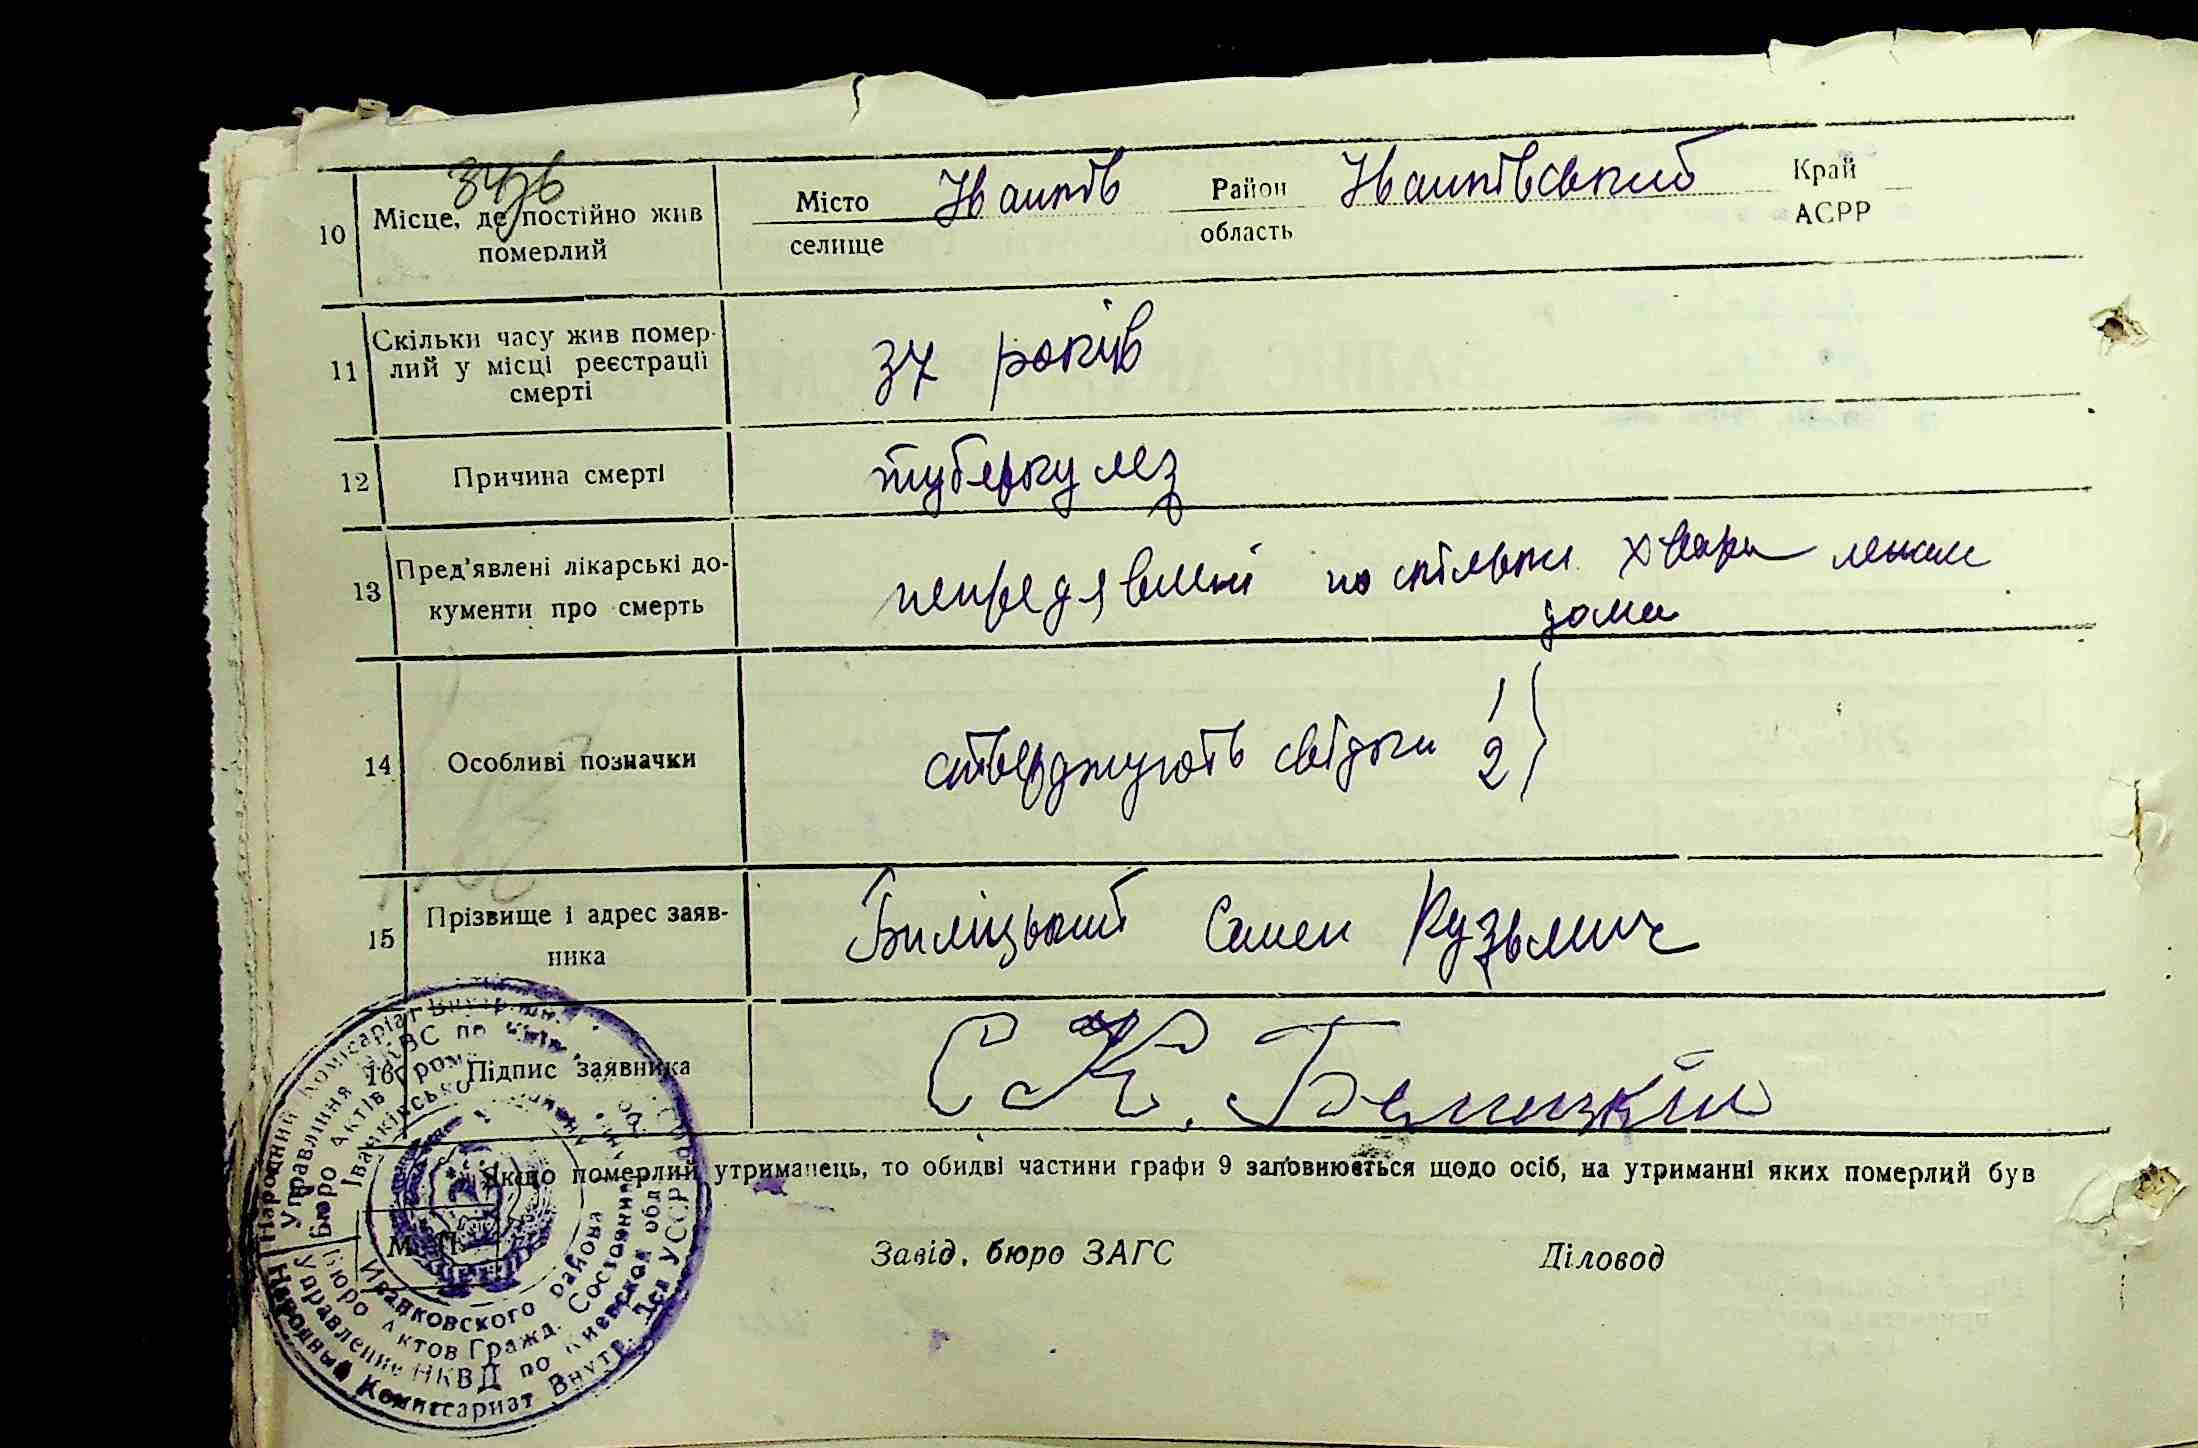 10 Місце, де постійно жив померлий
Місто Іванків Район Іванківський Край
селище область АСРР
11 Скільки часу жив помер-
лий у місці реєстрації
смерті
37 років
12 Причина смерті
туберкулез
13 Пред'явлені лікарські до-
кументи про смерть
непредявлені по скільки хвори лежали
дома
14 Особливі позначки
стверджують свідоки 1
2
15 Прізвище і адрес заяв-
ника
Биліцький Семен Кузьмич
16 Підпис заявника
С К. Белицкий
Якщо померлий утриманець, то обидві частини графи 9 заповнюється щодо осіб, на утриманні яких померлий був
М. П.
Завід. бюро ЗАГС Діловод
Народний Комісаріат Внутр.
Управління НКВС по
Бюро Актів Гром.
Іванківсько
Иванковского района
Бюро Актов Гражд. Состояния
Управление НКВД по Киевской обл
Народный Комиссариат Внутр. Дел УССР